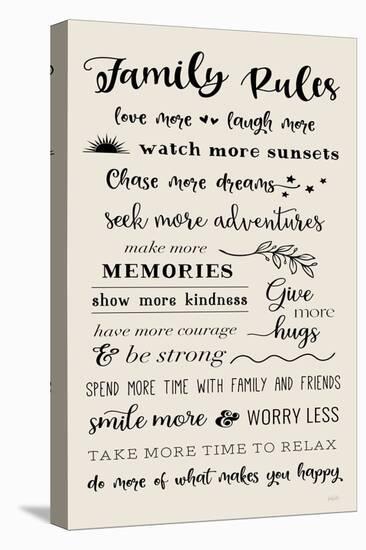 Family Rules
love more laugh more
watch more sunsets
Chase more dreams
seek more adventures
make more
MEMORIES
show more kindness
Give
more
hugs
have more courage
& be strong
SPEND MORE TIME WITH FAMILY AND FRIENDS
smile more & WORRY LESS
TAKE MORE TIME TO RELAX
do more of what makes you happy